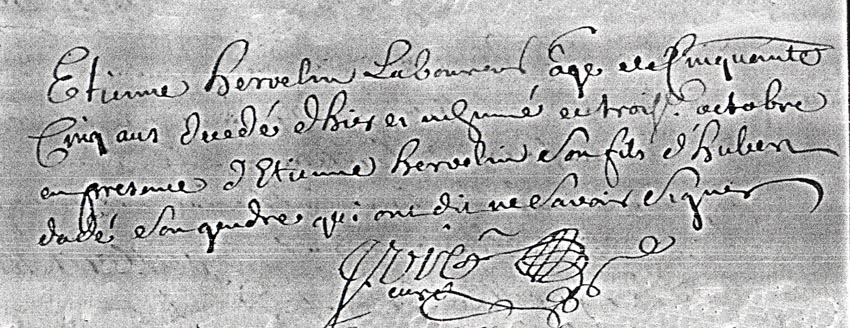 Etienne hervelin Laboureur âgé de Cinquante
Cinq ans decedé d'hier et inhumé ce trois.e octobre
en presence d'Etienne hervelin son fils d'huber
dadé son gendre qui ont dit ne savoir signer
curé